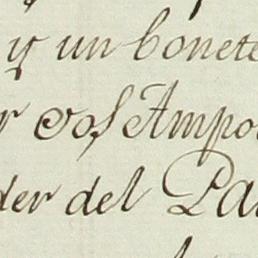 y un bonete
r dos Ampo
der del Pa